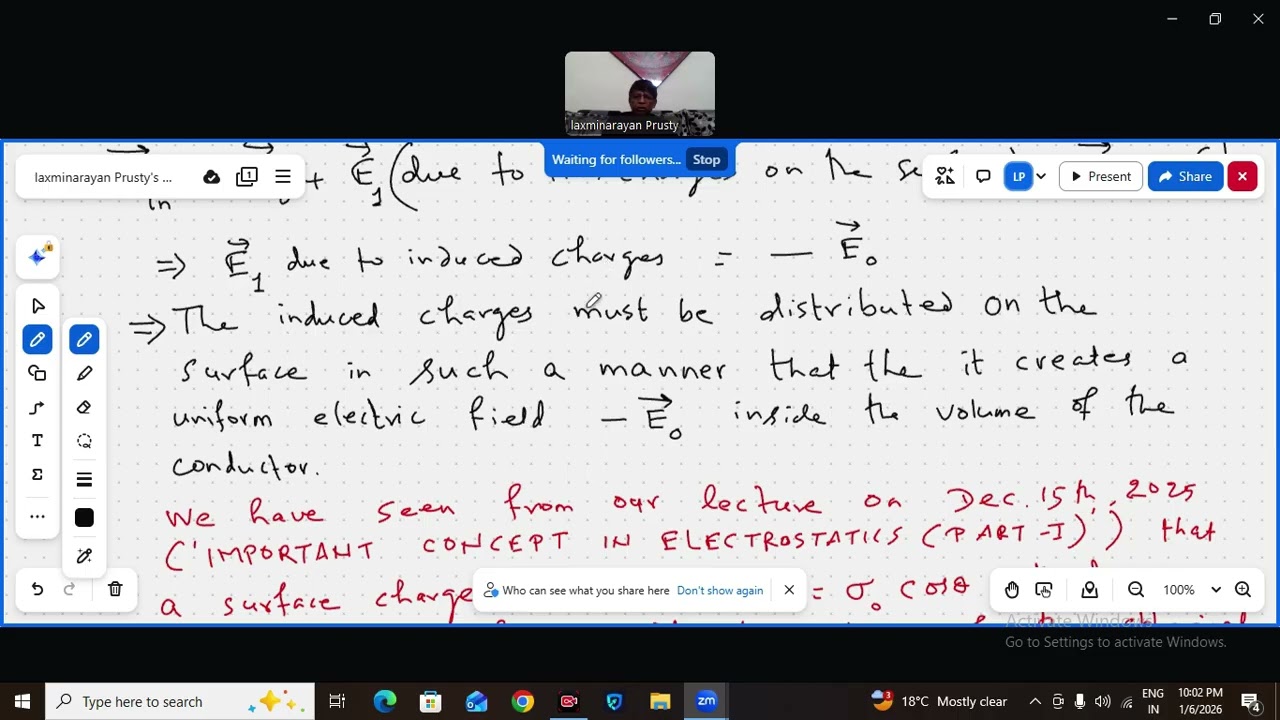 laxminarayan Prusty
Waiting for followers... Stop
laxminarayan Prusty's ...
LP
Present
Share
in
+ E₁ (due to on the
⇒ E₁ due to induced charges = — E₀
⇒ The induced charges must be distributed on the
surface in such a manner that the it creates a
uniform electric field — E₀ inside the volume of the
conductor.
We have seen from our lecture on Dec. 15th, 2025
('IMPORTANT CONCEPT IN ELECTROSTATICS (PART-I)') that
a surface charge = σ₀ cosθ
Who can see what you share here Don't show again
100%
Activate Windows
Go to Settings to activate Windows.
Type here to search
zm
3
18°C Mostly clear
ENG
IN
10:02 PM
1/6/2026
4